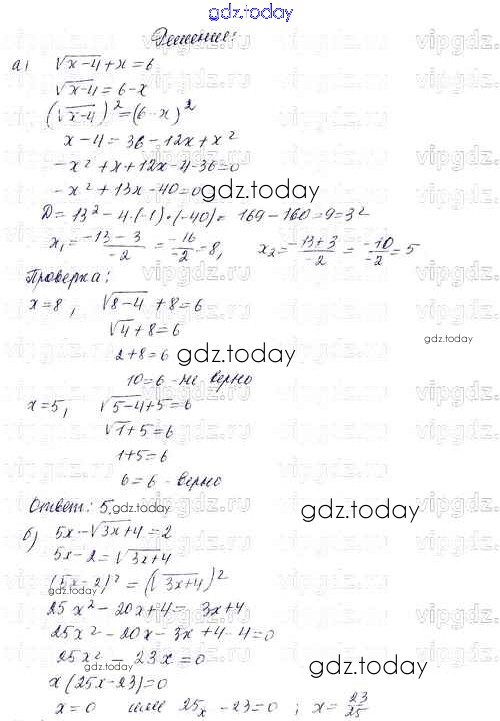 gdz.today
Решение:
а) √x-4 + x = 6
√x-4 = 6-x
(√x-4)² = (6-x)²
x-4 = 36-12x+x²
-x²+x+12x-4-36=0
-x²+13x-40=0
gdz.today
D = 13²-4·(-1)·(-40) = 169-160=9=3²
x₁ = -13-3/-2 = -16/-2 = 8, x₂ = -13+3/-2 = -10/-2 = 5
Проверка:
x=8, √8-4 + 8 = 6
√4 + 8 = 6
gdz.today
2+8=6
gdz.today
10=6 - не верно
x=5, √5-4 + 5 = 6
√1 + 5 = 6
1+5=6
6=6 - верно
Ответ: 5.
gdz.today
gdz.today
б) 5x-√3x+4 = 2
5x-2 = √3x+4
(5x-2)² = (√3x+4)²
25x²-20x+4 = 3x+4
25x²-20x-3x+4-4=0
25x²-23x=0
gdz.today
gdz.today
x(25x-23)=0
x=0 или 25x-23=0; x = 23/25